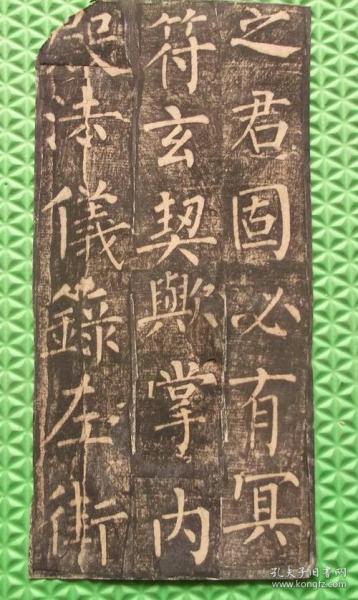 之君固必有冥
符玄契歟掌内
殿法儀錄左街
孔夫子旧书网
book.kongfz.com